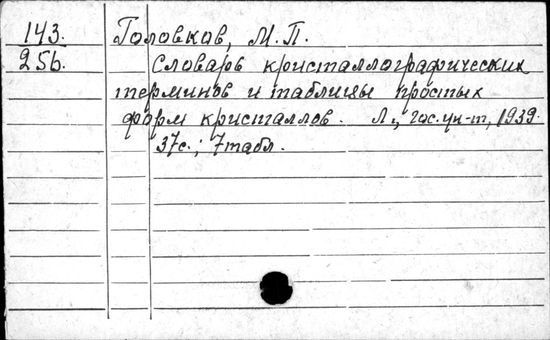 143. Головков, М.П.
256. Словарь кристаллографических
терминов и таблицы простых
форм кристаллов. Л., гос.ун-т, 1939.
37с.; 7табл.